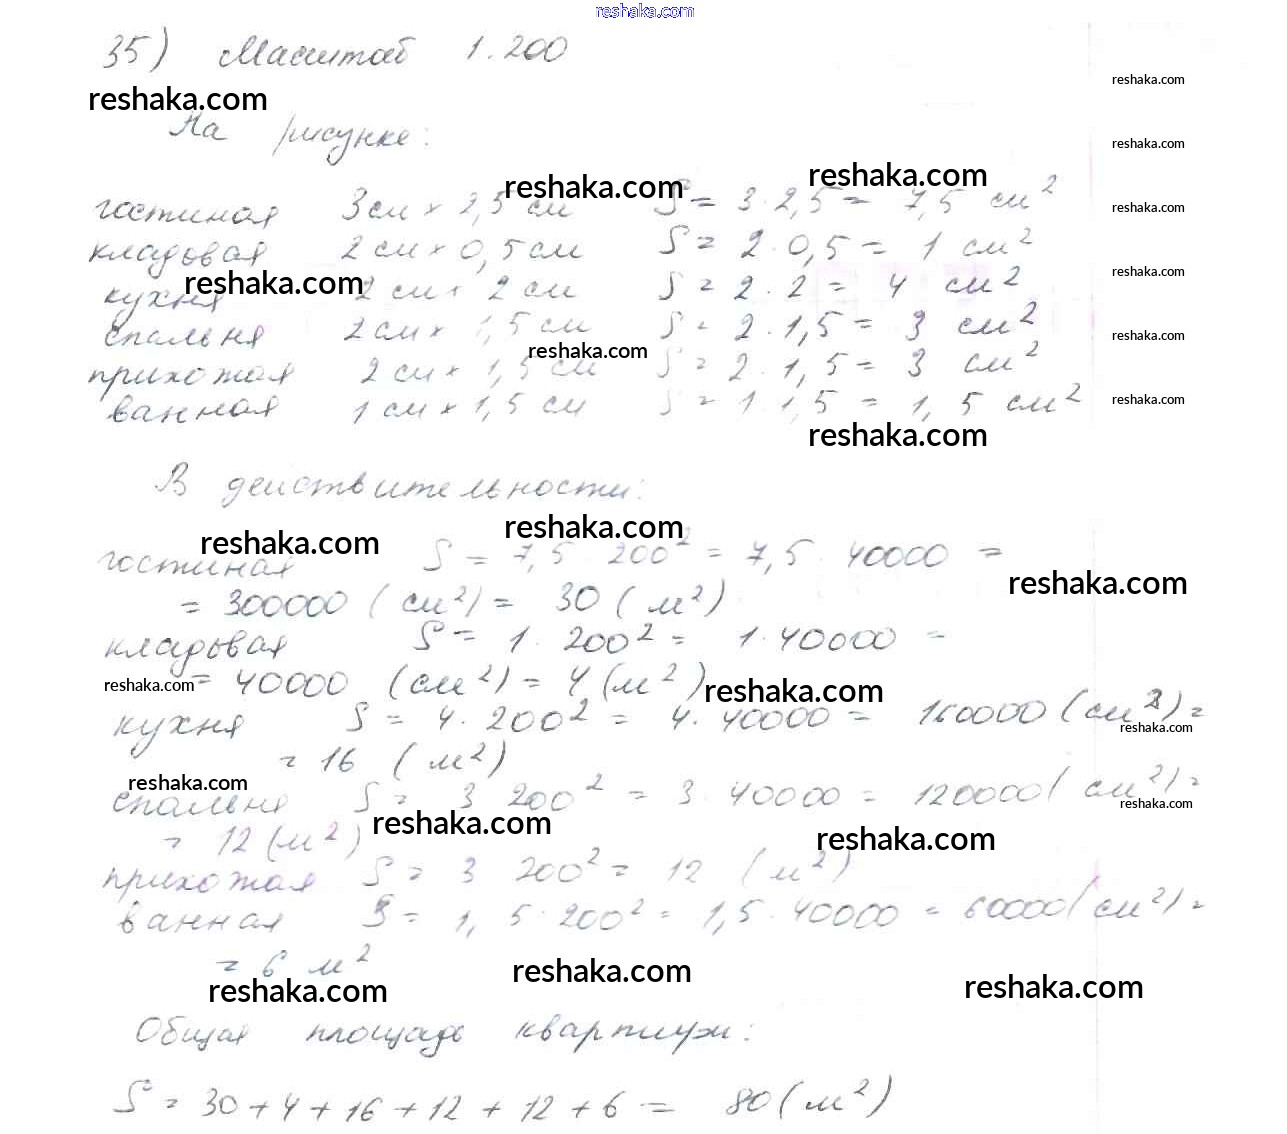 reshaka.com
35) Масштаб 1:200
reshaka.com
reshaka.com
На рисунке:
reshaka.com
reshaka.com
reshaka.com
гостиная 3 см × 2,5 см S = 3·2,5 = 7,5 см²
reshaka.com
кладовая 2 см × 0,5 см S = 2·0,5 = 1 см²
reshaka.com
reshaka.com
кухня 2 см × 2 см S = 2·2 = 4 см²
спальня 2 см × 1,5 см S = 2·1,5 = 3 см²
reshaka.com
reshaka.com
прихожая 2 см × 1,5 см S = 2·1,5 = 3 см²
ванная 1 см × 1,5 см S = 1·1,5 = 1,5 см²
reshaka.com
reshaka.com
В действительности:
reshaka.com
reshaka.com
гостиная S = 7,5·200² = 7,5·40000 =
reshaka.com
= 300000 (см²) = 30 (м²)
кладовая S = 1·200² = 1·40000 =
reshaka.com
= 40000 (см²) = 4 (м²)
reshaka.com
кухня S = 4·200² = 4·40000 = 160000 (см²) =
reshaka.com
= 16 (м²)
reshaka.com
спальня S = 3·200² = 3·40000 = 120000 (см²) =
reshaka.com
reshaka.com
= 12 (м²)
reshaka.com
прихожая S = 3·200² = 12 (м²)
ванная S = 1,5·200² = 1,5·40000 = 60000 (см²) =
= 6 м²
reshaka.com
reshaka.com
reshaka.com
Общая площадь квартиры:
S = 30 + 4 + 16 + 12 + 12 + 6 = 80 (м²)